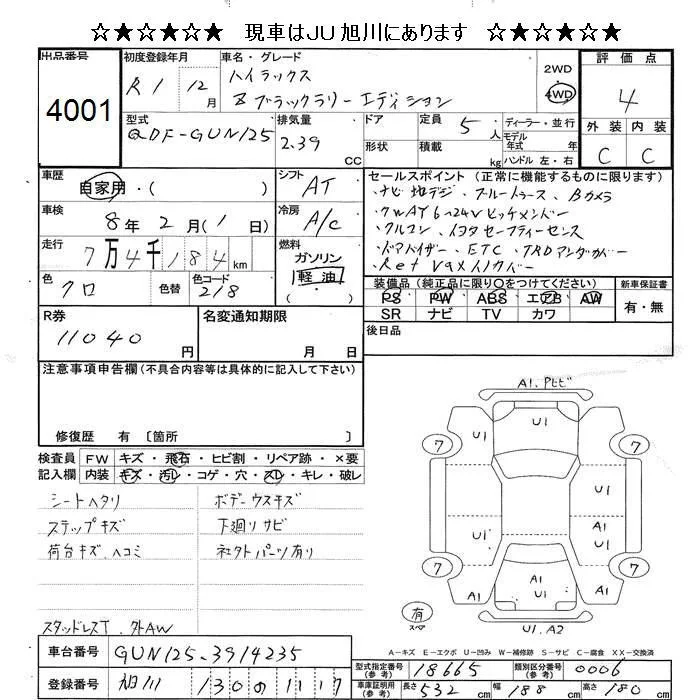 ☆★☆★☆★ 現車はJU旭川にあります ☆★☆★☆★
出品番号 4001
初度登録年月 R1 / 12月
車名・グレード ハイラックス
Z ブラックラリーエディション
2WD
4WD
評価点 4
外装 C 内装 C
型式 QDF-GUN125
排気量 2.39 CC
ドア 形状
定員 5人
積載 kg
ディーラー・並行
モデル年式 年
ハンドル 左・右
車歴 自家用・( )
車検 8年2月(1日)
走行 7万4千184km
色 クロ
色替
色コード 218
シフト AT
冷房 A/C
燃料 ガソリン
軽油
( )
セールスポイント (正常に機能するものに限ります)
・ナビ 地デジ、ブルートゥース、Bカメラ
・クルコン、トヨタセーフティーセンス
・ドアバイザー、ETC、TRDアンダーカバー
装備品 (純正品に限り〇をつけてください)
PS PW ABS エアB AW
SR ナビ TV カワ
新車保証書
有・無
後日品
R券 11040円
名変通知期限 月 日
注意事項申告欄(不具合内容等は具体的に記入して下さい)
修復歴 有 〔箇所
検査員記入欄
FW キズ・飛石・ヒビ割・リペア跡・×要
内装 キズ・汚レ・コゲ・穴・スレ・キレ・破レ
シートヘタリ
ステップキズ
荷台キズ、ヘコミ
スタッドレスT、外AW
ボデーウスキズ
下廻リサビ
社外パーツ有り
A1.Pヒビ
U1
U1 U1
7 7
U1
A1
U1 U1
7 7
A1 A1 U1 A1
有
スペア
U1.A2
A-キズ E-エクボ U-凹み W-補修跡 S-サビ C-腐食 XX-交換済
車台番号 GUN125-3914235
登録番号 旭川 130 の 1117
型式指定番号(参考) 18665
類別区分番号(参考) 0006
車庫証明用(参考) 長さ 532cm 幅 188cm 高さ 180cm